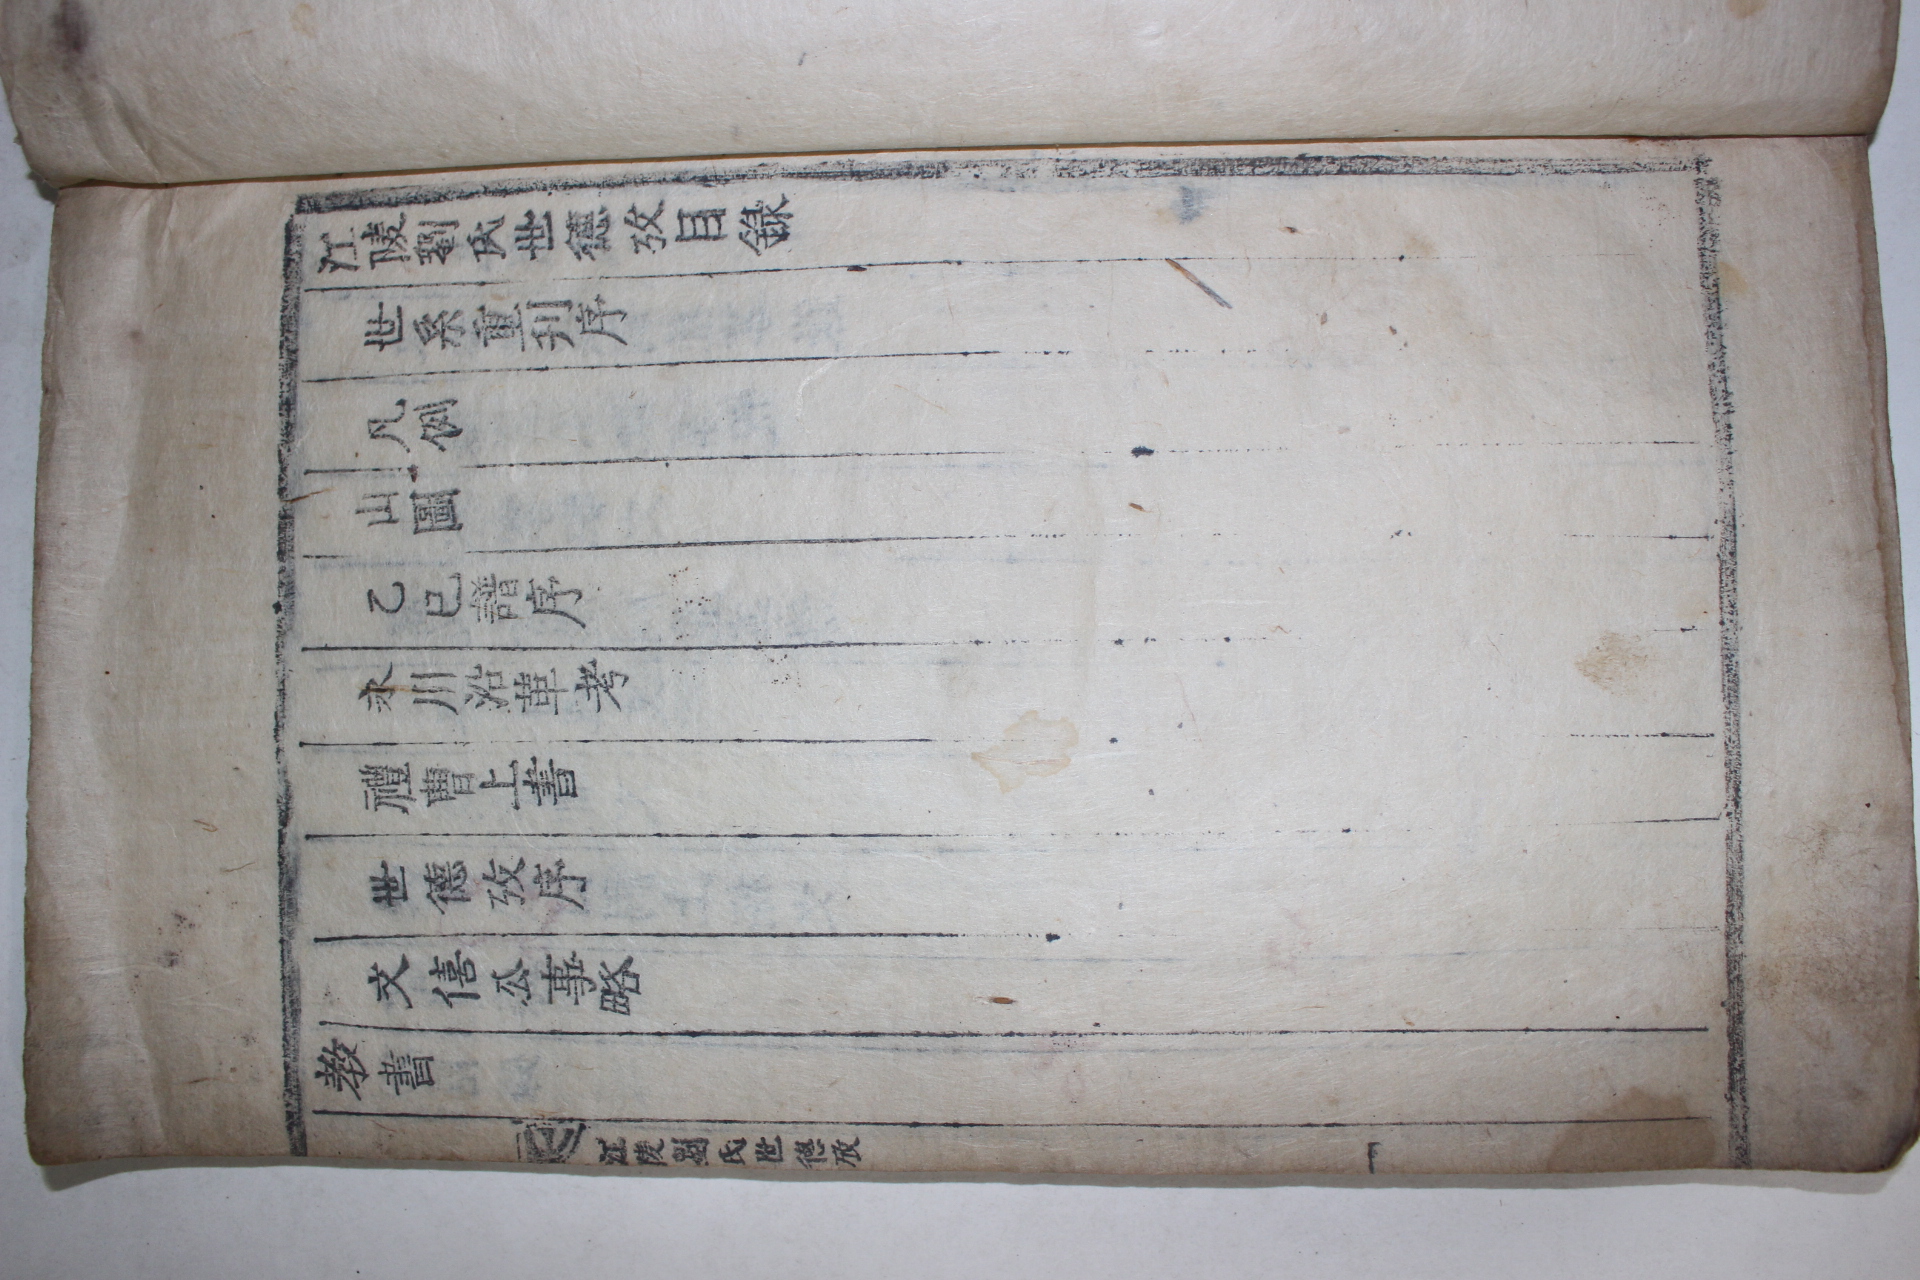 江陵劉氏世德攷目錄
世系重刊序
凡例
山圖
乙巳譜序
永川沿革考
禮曹上書
世德攷序
文僖公事略
教書
江陵劉氏世德攷
一